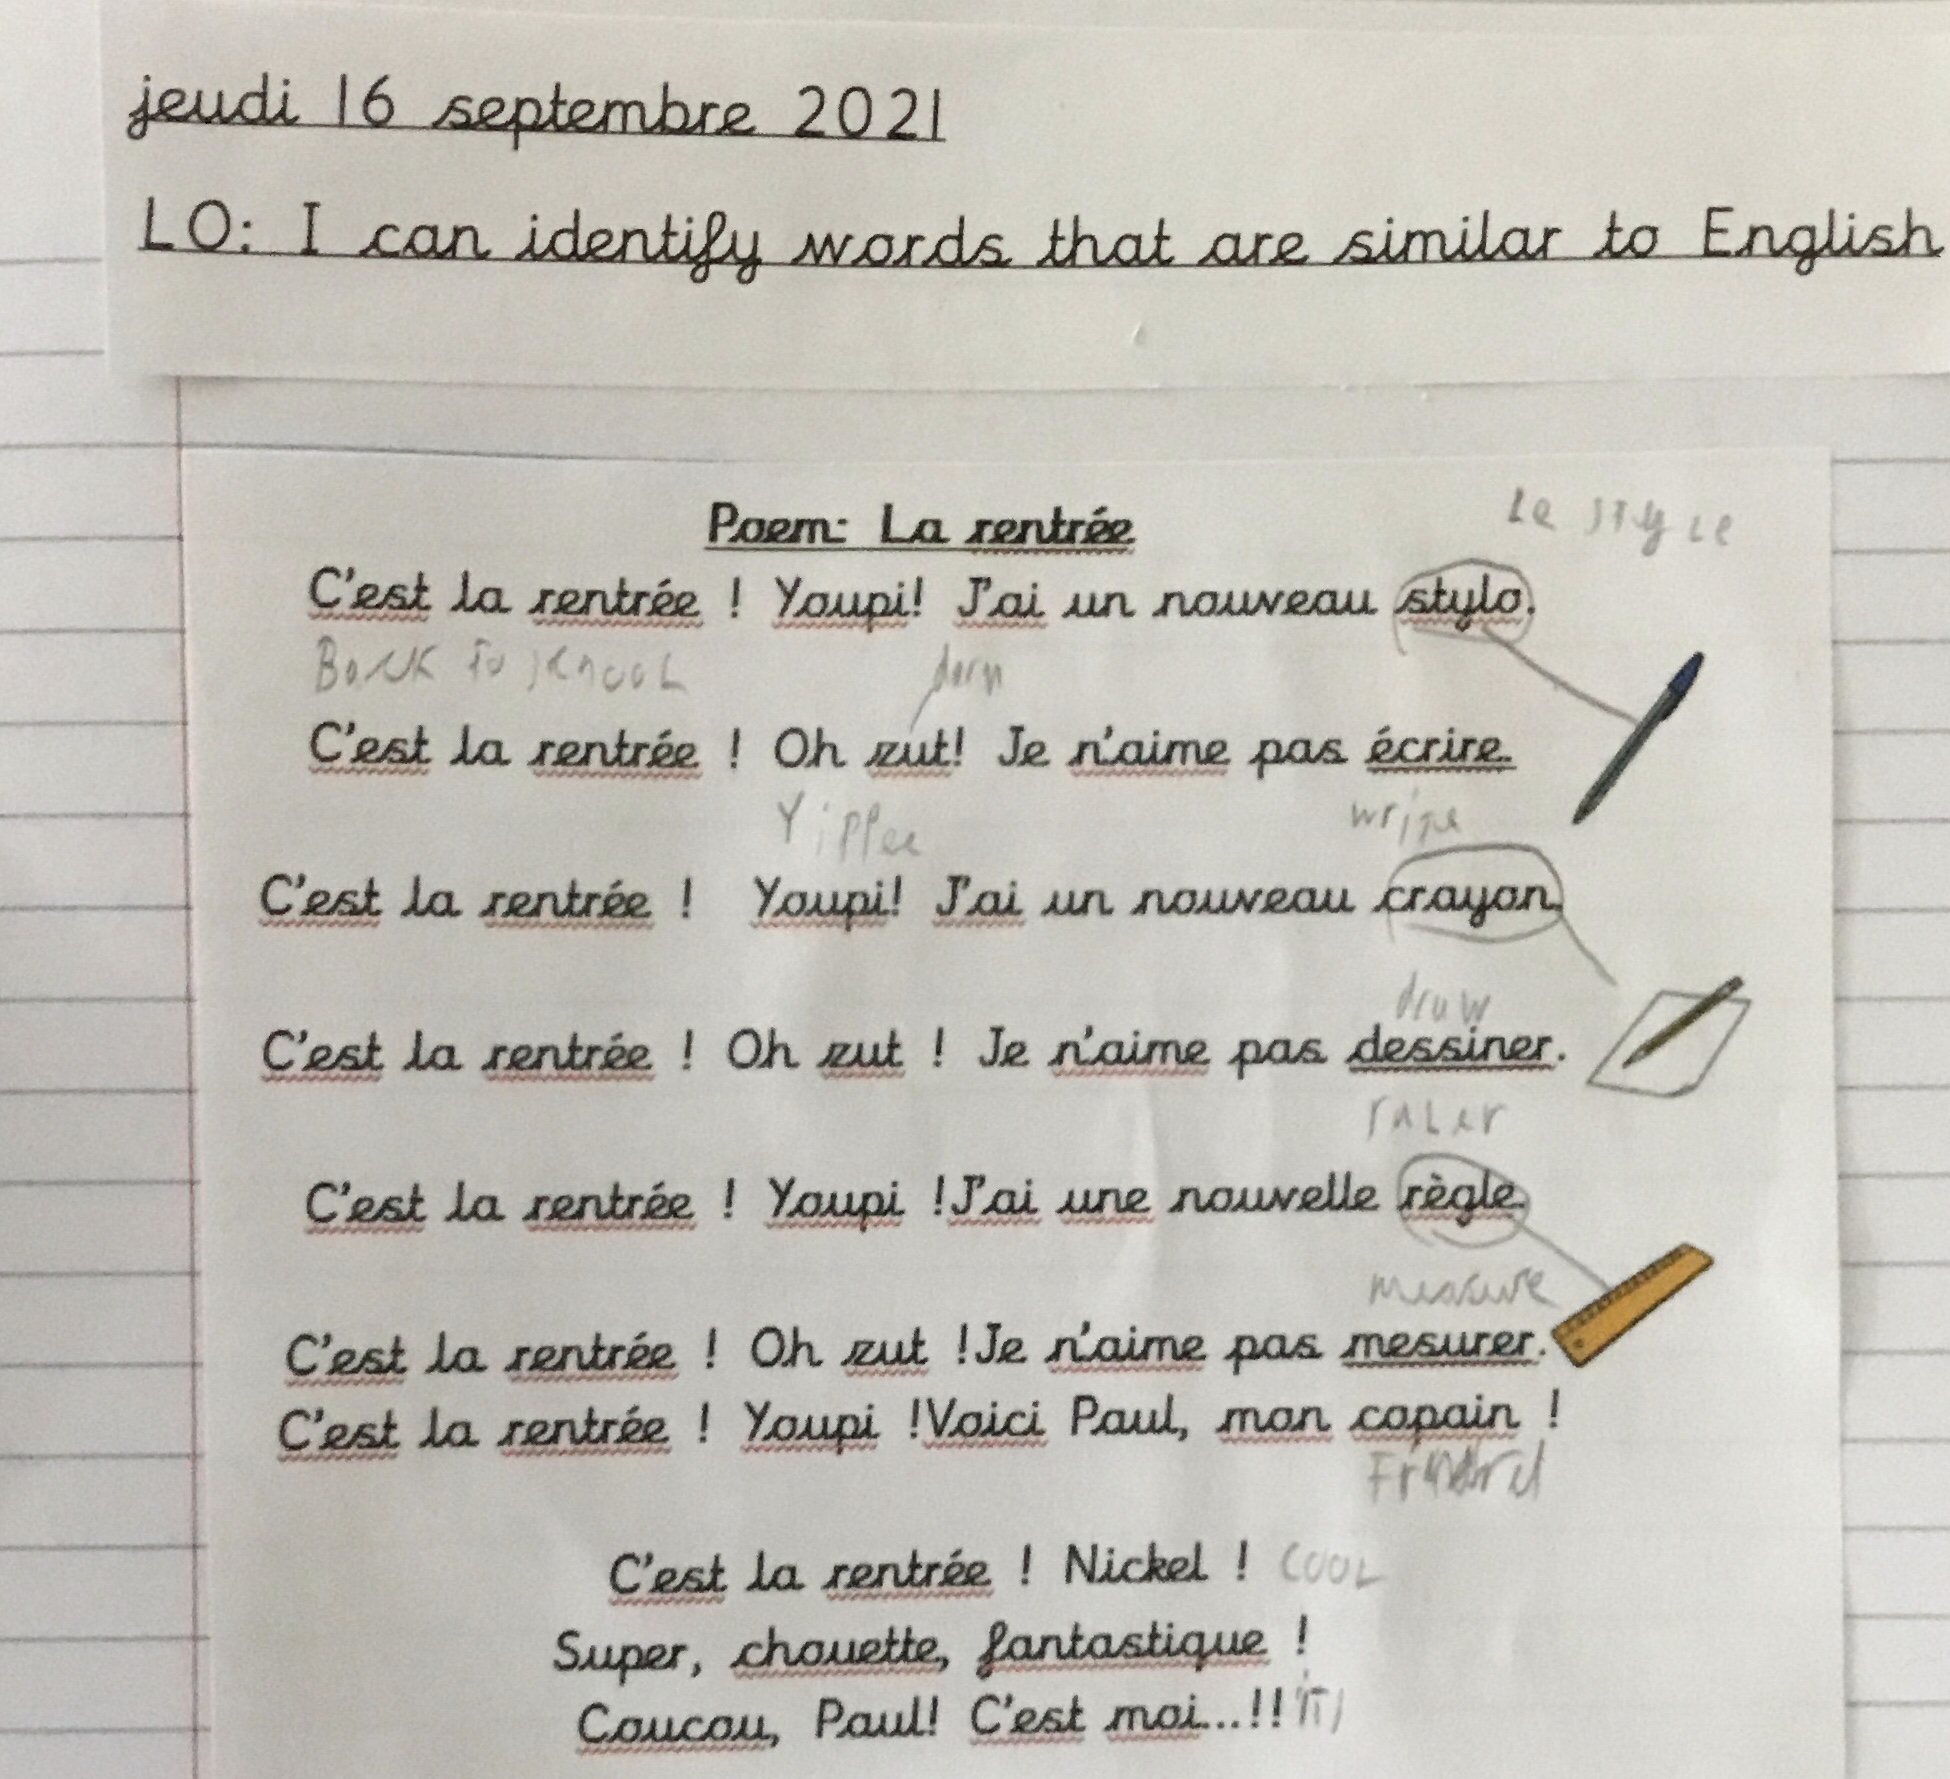 jeudi 16 septembre 2021
LO: I can identify words that are similar to English
Poem: La rentrée
Le style
C'est la rentrée ! Youpi! J'ai un nouveau stylo.
Back to school darn
C'est la rentrée ! Oh zut! Je n'aime pas écrire.
Yippee write
C'est la rentrée ! Youpi! J'ai un nouveau crayon.
draw
C'est la rentrée ! Oh zut ! Je n'aime pas dessiner.
ruler
C'est la rentrée ! Youpi !J'ai une nouvelle règle.
measure
C'est la rentrée ! Oh zut !Je n'aime pas mesurer.
C'est la rentrée ! Youpi !Voici Paul, mon copain !
C'est la rentrée ! Nickel ! COOL
Super, chouette, fantastique !
Coucou, Paul! C'est moi...!!